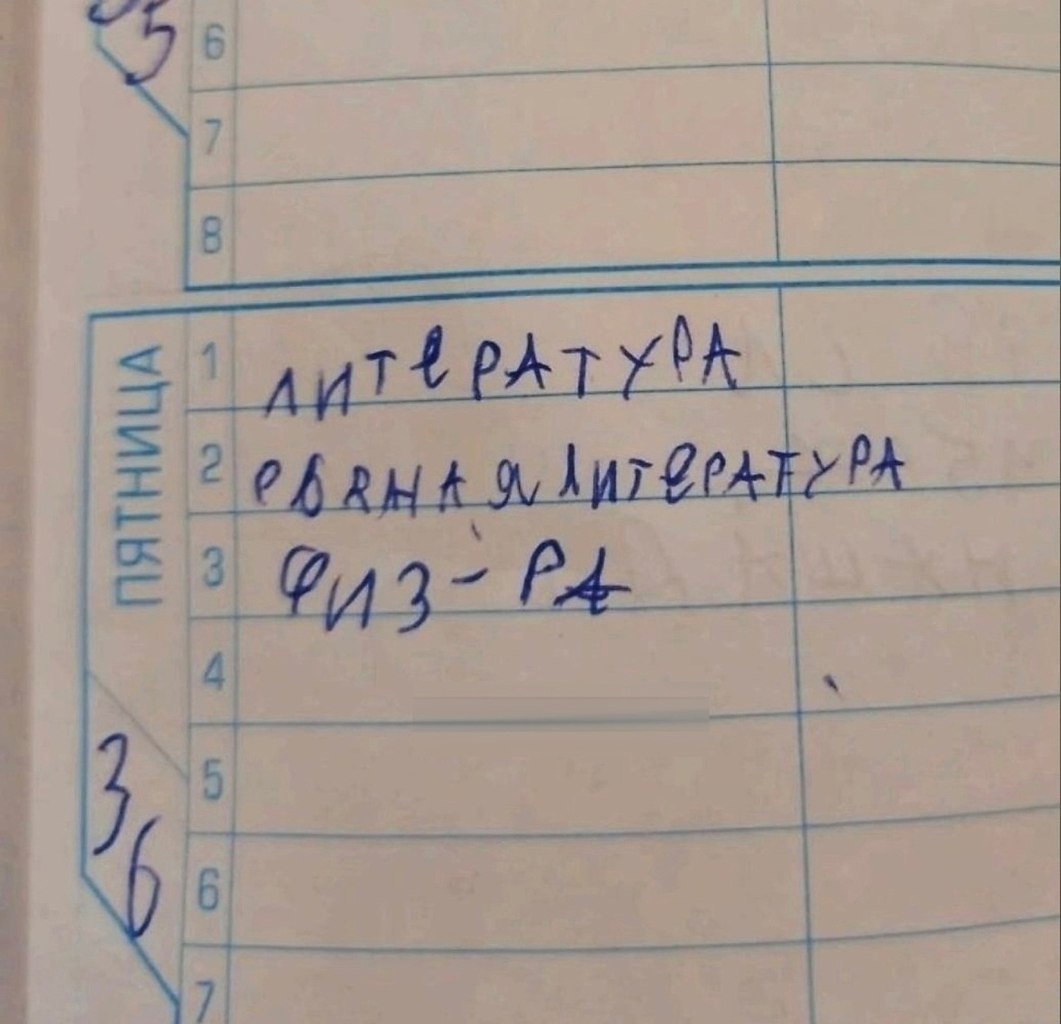 5
6
7
8
ПЯТНИЦА
1 ЛИТЕРАТУРА
2 РВАНАЯ ЛИТЕРАТУРА
3 ФИЗ-РА
4
5
3
6
6
7